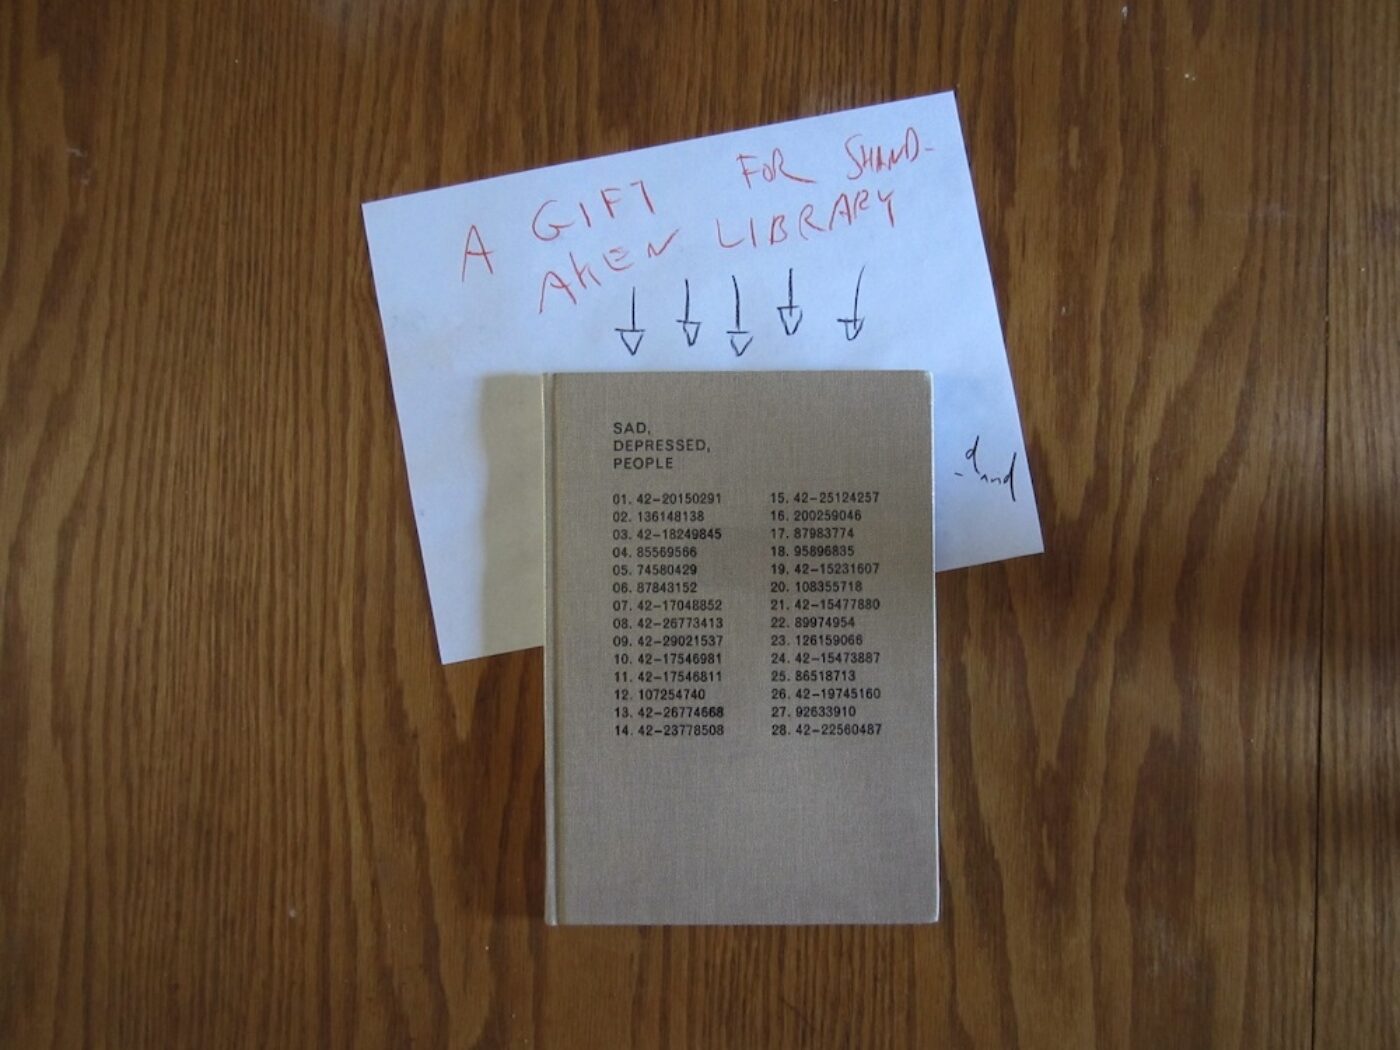 A GIFT FOR SHAND-
AKEN LIBRARY
SAD,
DEPRESSED,
PEOPLE
01. 42–20150291
02. 136148138
03. 42–18249845
04. 85569566
05. 74580429
06. 87843152
07. 42–17048852
08. 42–26773413
09. 42–29021537
10. 42–17546981
11. 42–17546811
12. 107254740
13. 42–26774668
14. 42–23778508
15. 42–25124257
16. 200259046
17. 87983774
18. 95896835
19. 42–15231607
20. 108355718
21. 42–15477880
22. 89974954
23. 126159066
24. 42–15473887
25. 86518713
26. 42–19745160
27. 92633910
28. 42–22560487